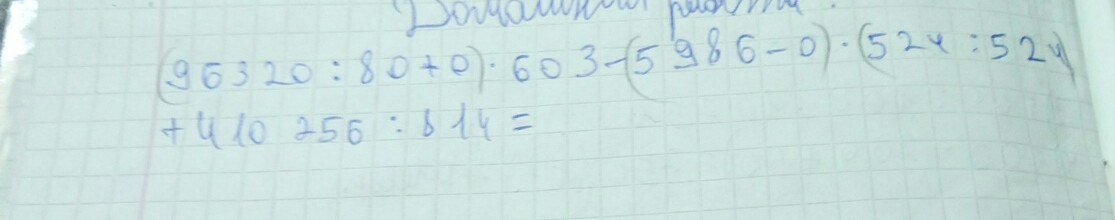 Домашняя работа.
(96320:80+0)·603-(5986-0)·(524:524)
+410256:814=